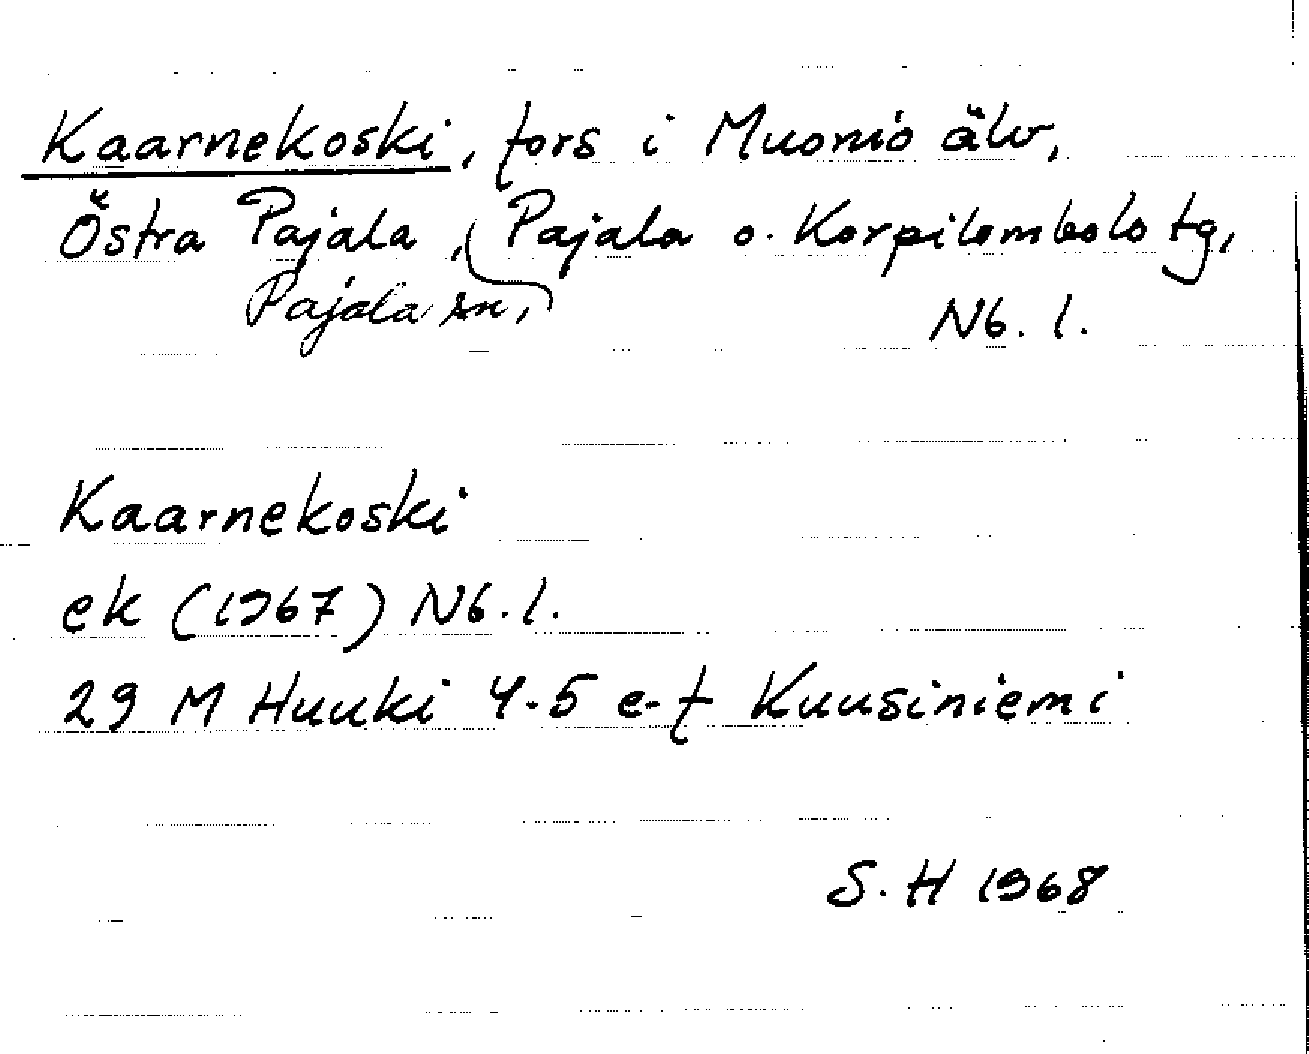 Kaarnekoski, fors i Muonio älv,
Östra Pajala, Pajala o. Korpilombolo tg,
Pajala sn,
Nb. l.
Kaarnekoski
ek (1967) Nb. l.
29 M Huuki 4-5 e-f Kuusiniemi
S. H 1968